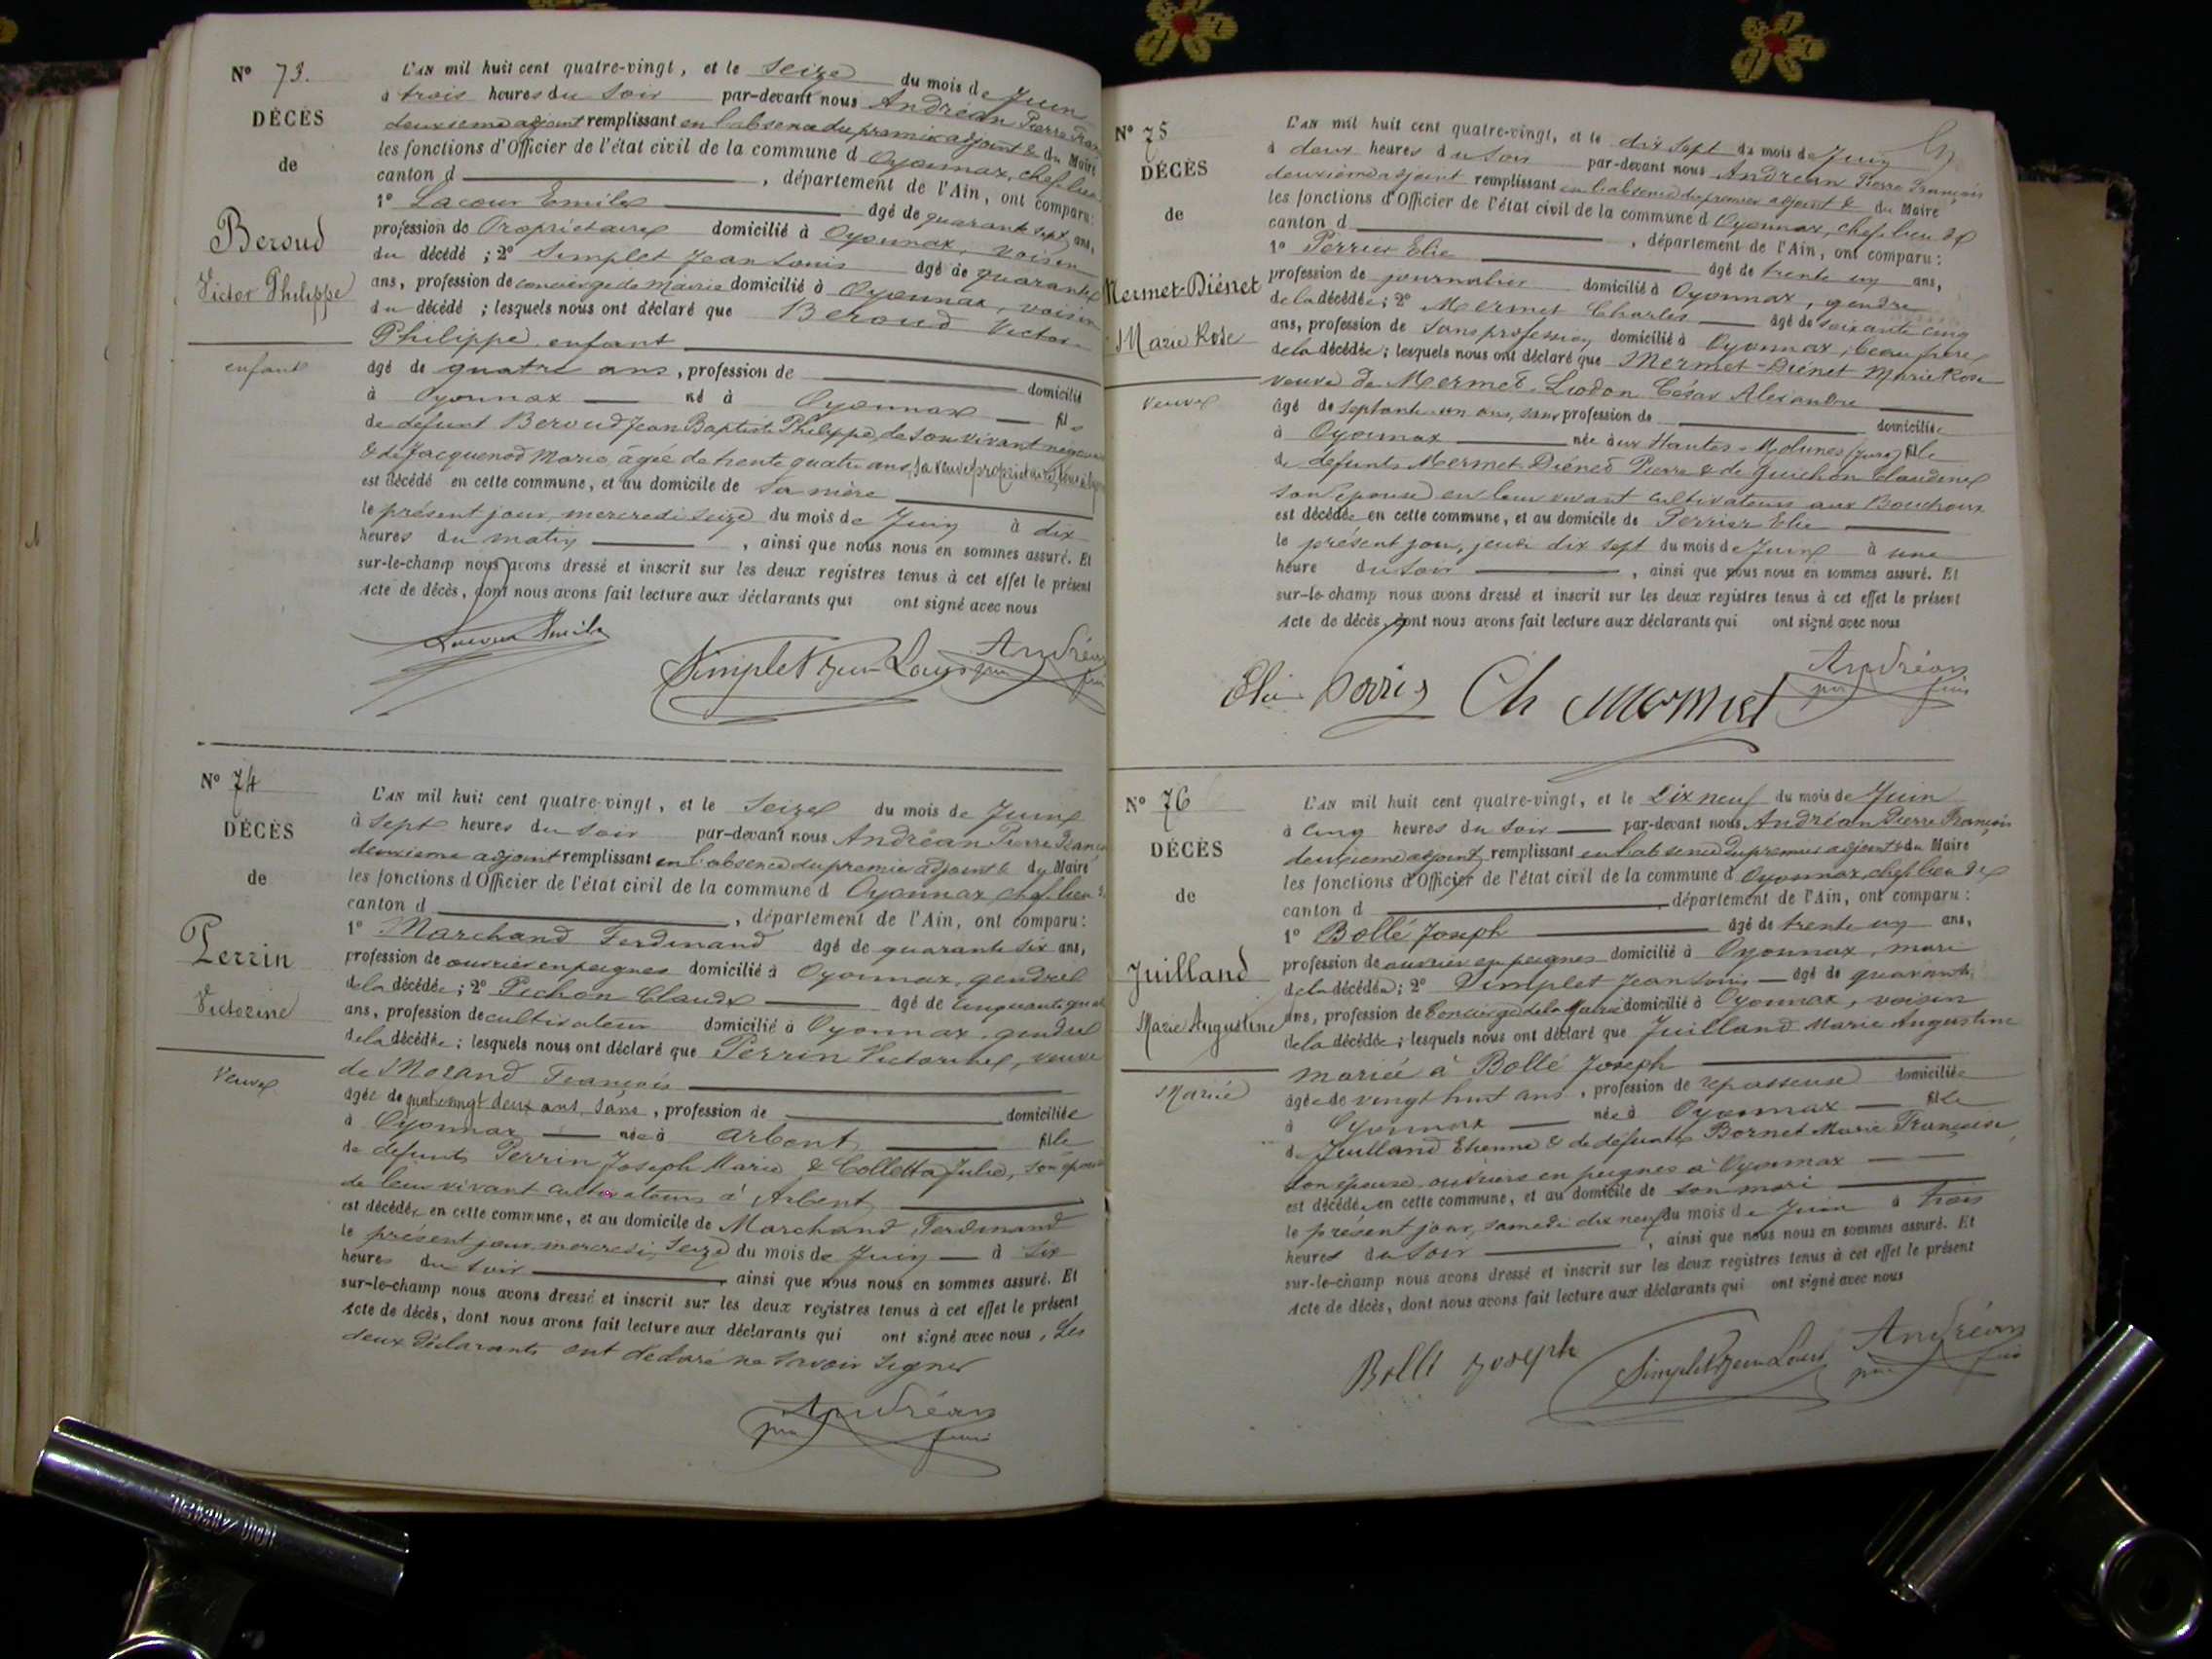 N° 73.
DÉCÈS
de
Beroud
Victor Philippe
enfant
L'AN mil huit cent quatre-vingt, et le seize du mois de Juin
à trois heures du soir par-devant nous Andréan Pierre
deuxième adjoint remplissant en l'absence du premier adjoint & du Maire
les fonctions d'Officier de l'état civil de la commune d Oyonnax, chef-lieu
canton d , département de l'Ain, ont comparu:
1° Lacour Emile âgé de quarante sept ans,
profession de Propriétaire domicilié à Oyonnax, voisin
du décédé ; 2° Simplet Jean Louis âgé de quarante
ans, profession de concierge de Mairie domicilié à Oyonnax, voisin
du décédé ; lesquels nous ont déclaré que Beroud Victor
Philippe enfant
âgé de quatre ans, profession de domicilié
à Oyonnax né à Oyonnax fils
de défunt Beroud Jean Baptiste Philippe, de son vivant
& de Jacquenod Marie, âgée de trente quatre ans, sa veuve propriétaire
est décédé en cette commune, et au domicile de sa mère
le présent jour, mercredi seize du mois de Juin à dix
heures du matin , ainsi que nous nous en sommes assuré. Et
sur-le-champ nous avons dressé et inscrit sur les deux registres tenus à cet effet le présent
Acte de décès, dont nous avons fait lecture aux déclarants qui ont signé avec nous
Lacour Emile
Simplet Jean Louis Andréan
N° 74
DÉCÈS
de
Perrin
Victorine
Veuve
L'AN mil huit cent quatre-vingt, et le seize du mois de Juin
à sept heures du soir par-devant nous Andréan Pierre
deuxième adjoint remplissant en l'absence du premier adjoint & du Maire
les fonctions d'Officier de l'état civil de la commune d Oyonnax, chef-lieu
canton d , département de l'Ain, ont comparu:
1° Marchand Ferdinand âgé de quarante six ans,
profession de ouvrier en peignes domicilié à Oyonnax, gendre
de la décédée; 2° Pichon Claude âgé de
ans, profession de cultivateur domicilié à Oyonnax, gendre
de la décédée; lesquels nous ont déclaré que Perrin Victorine, veuve
de Morand François
âgée de quatre vingt deux ans, sans, profession de domiciliée
à Oyonnax née à Arbent fille
de défunts Perrin Joseph Marie & Colletta Julie, son épouse
de leur vivant cultivateurs à Arbent
est décédée en cette commune, et au domicile de Marchand Ferdinand
le présent jour, mercredi, seize du mois de Juin à six
heures du soir , ainsi que nous nous en sommes assuré. Et
sur-le-champ nous avons dressé et inscrit sur les deux registres tenus à cet effet le présent
Acte de décès, dont nous avons fait lecture aux déclarants qui ont signé avec nous, Les
deux déclarants ont déclaré ne savoir signer
Andréan
N° 75
DÉCÈS
de
Mermet-Diénet
Marie Rose
Veuve
L'AN mil huit cent quatre-vingt, et le dix sept du mois de Juin
à deux heures du soir par-devant nous Andréan Pierre François
deuxième adjoint remplissant en l'absence du premier adjoint & du Maire
les fonctions d'Officier de l'état civil de la commune d Oyonnax, chef-lieu de
canton d , département de l'Ain, ont comparu:
1° Perrier Elie âgé de trente un ans,
profession de journalier domicilié à Oyonnax, gendre
de la décédée; 2° Mermet Charles âgé de soixante cinq
ans, profession de sans profession domicilié à Oyonnax, beau frère
de la décédée; lesquels nous ont déclaré que Mermet-Diénet Marie Rose
veuve de Mermet-Liodon César Alexandre
âgé de septante un ans, sans profession de domiciliée
à Oyonnax née aux Hautes-Molunes (Jura) fille
de défunts Mermet-Diénet Pierre & de Guichon Claudine
son épouse en leur vivant cultivateurs aux Bouchoux
est décédée en cette commune, et au domicile de Perrier Elie
le présent jour, jeudi dix sept du mois de Juin à une
heure du soir , ainsi que nous nous en sommes assuré. Et
sur-le-champ nous avons dressé et inscrit sur les deux registres tenus à cet effet le présent
Acte de décès, dont nous avons fait lecture aux déclarants qui ont signé avec nous
Elie Ch Mermet Andréan
N° 76
DÉCÈS
de
Juilland
Marie Augustine
Mariée
L'AN mil huit cent quatre-vingt, et le Dix neuf du mois de Juin
à cinq heures du soir par-devant nous Andréan Pierre François
deuxième adjoint remplissant en l'absence du premier adjoint & du Maire
les fonctions d'Officier de l'état civil de la commune d Oyonnax, chef-lieu de
canton d département de l'Ain, ont comparu:
1° Bollé Joseph âgé de trente un ans,
profession de ouvrier en peignes domicilié à Oyonnax, mari
de la décédée; 2° Simplet Jean Louis âgé de quarante
ans, profession de Concierge de la Mairie domicilié à Oyonnax, voisin
de la décédée; lesquels nous ont déclaré que Juilland Marie Augustine
mariée à Bollé Joseph
âgée de vingt huit ans, profession de repasseuse domiciliée
à Oyonnax née à Oyonnax fille
de Juilland Etienne & de défunte Bornet Marie Françoise,
son épouse, ouvriers en peignes à Oyonnax
est décédée en cette commune, et au domicile de son mari
le présent jour, samedi dix neuf du mois de Juin à trois
heures du soir , ainsi que nous nous en sommes assuré. Et
sur-le-champ nous avons dressé et inscrit sur les deux registres tenus à cet effet le présent
Acte de décès, dont nous avons fait lecture aux déclarants qui ont signé avec nous
Bollé Joseph Simplet Jean Louis Andréan